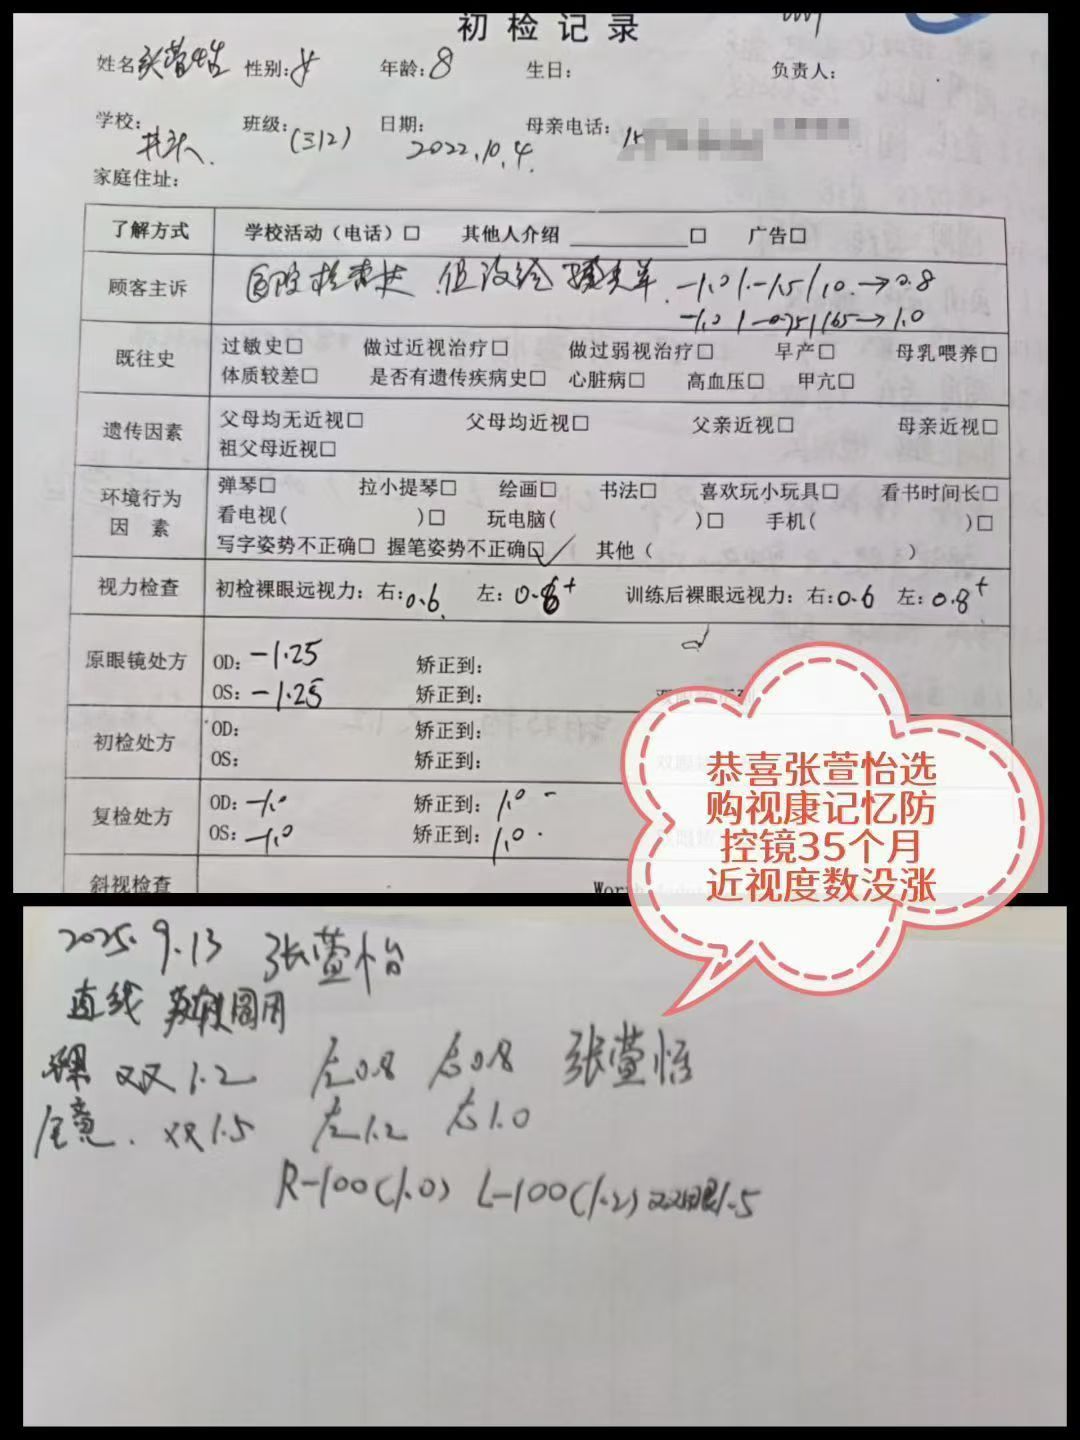 初检记录
姓名 张萱怡 性别:女 年龄:8 生日: 负责人:
学校: 班级:(312) 日期:2022.10.4. 母亲电话:
家庭住址:
了解方式 学校活动(电话)□ 其他人介绍 ________□ 广告□
顾客主诉 医院检查过 但没给 -1.0/-1.5/10.→0.8
-1.0/-0.75/165→1.0
既往史 过敏史□ 做过近视治疗□ 做过弱视治疗□ 早产□ 母乳喂养□
体质较差□ 是否有遗传疾病史□ 心脏病□ 高血压□ 甲亢□
遗传因素 父母均无近视□ 父母均近视□ 父亲近视□ 母亲近视□
祖父母近视□
环境行为因素 弹琴□ 拉小提琴□ 绘画□ 书法□ 喜欢玩小玩具□ 看书时间长□
看电视( )□ 玩电脑( )□ 手机( )□
写字姿势不正确□ 握笔姿势不正确☑ 其他( )
视力检查 初检裸眼远视力:右:0.6 左:0.8+ 训练后裸眼远视力:右:0.6 左:0.8+
原眼镜处方 OD:-1.25 矫正到:
OS:-1.25 矫正到:
初检处方 OD: 矫正到:
OS: 矫正到:
复检处方 OD:-1.0 矫正到:1.0 -
OS:-1.0 矫正到:1.0.
斜视检查
恭喜张萱怡选
购视康记忆防
控镜35个月
近视度数没涨
2025.9.13 张萱怡
直线 圆用
裸 双 1.2 左0.8 右0.8 张萱怡
双1.5 左1.2 右1.0
R-100(1.0) L-100(1.2) 双眼1.5